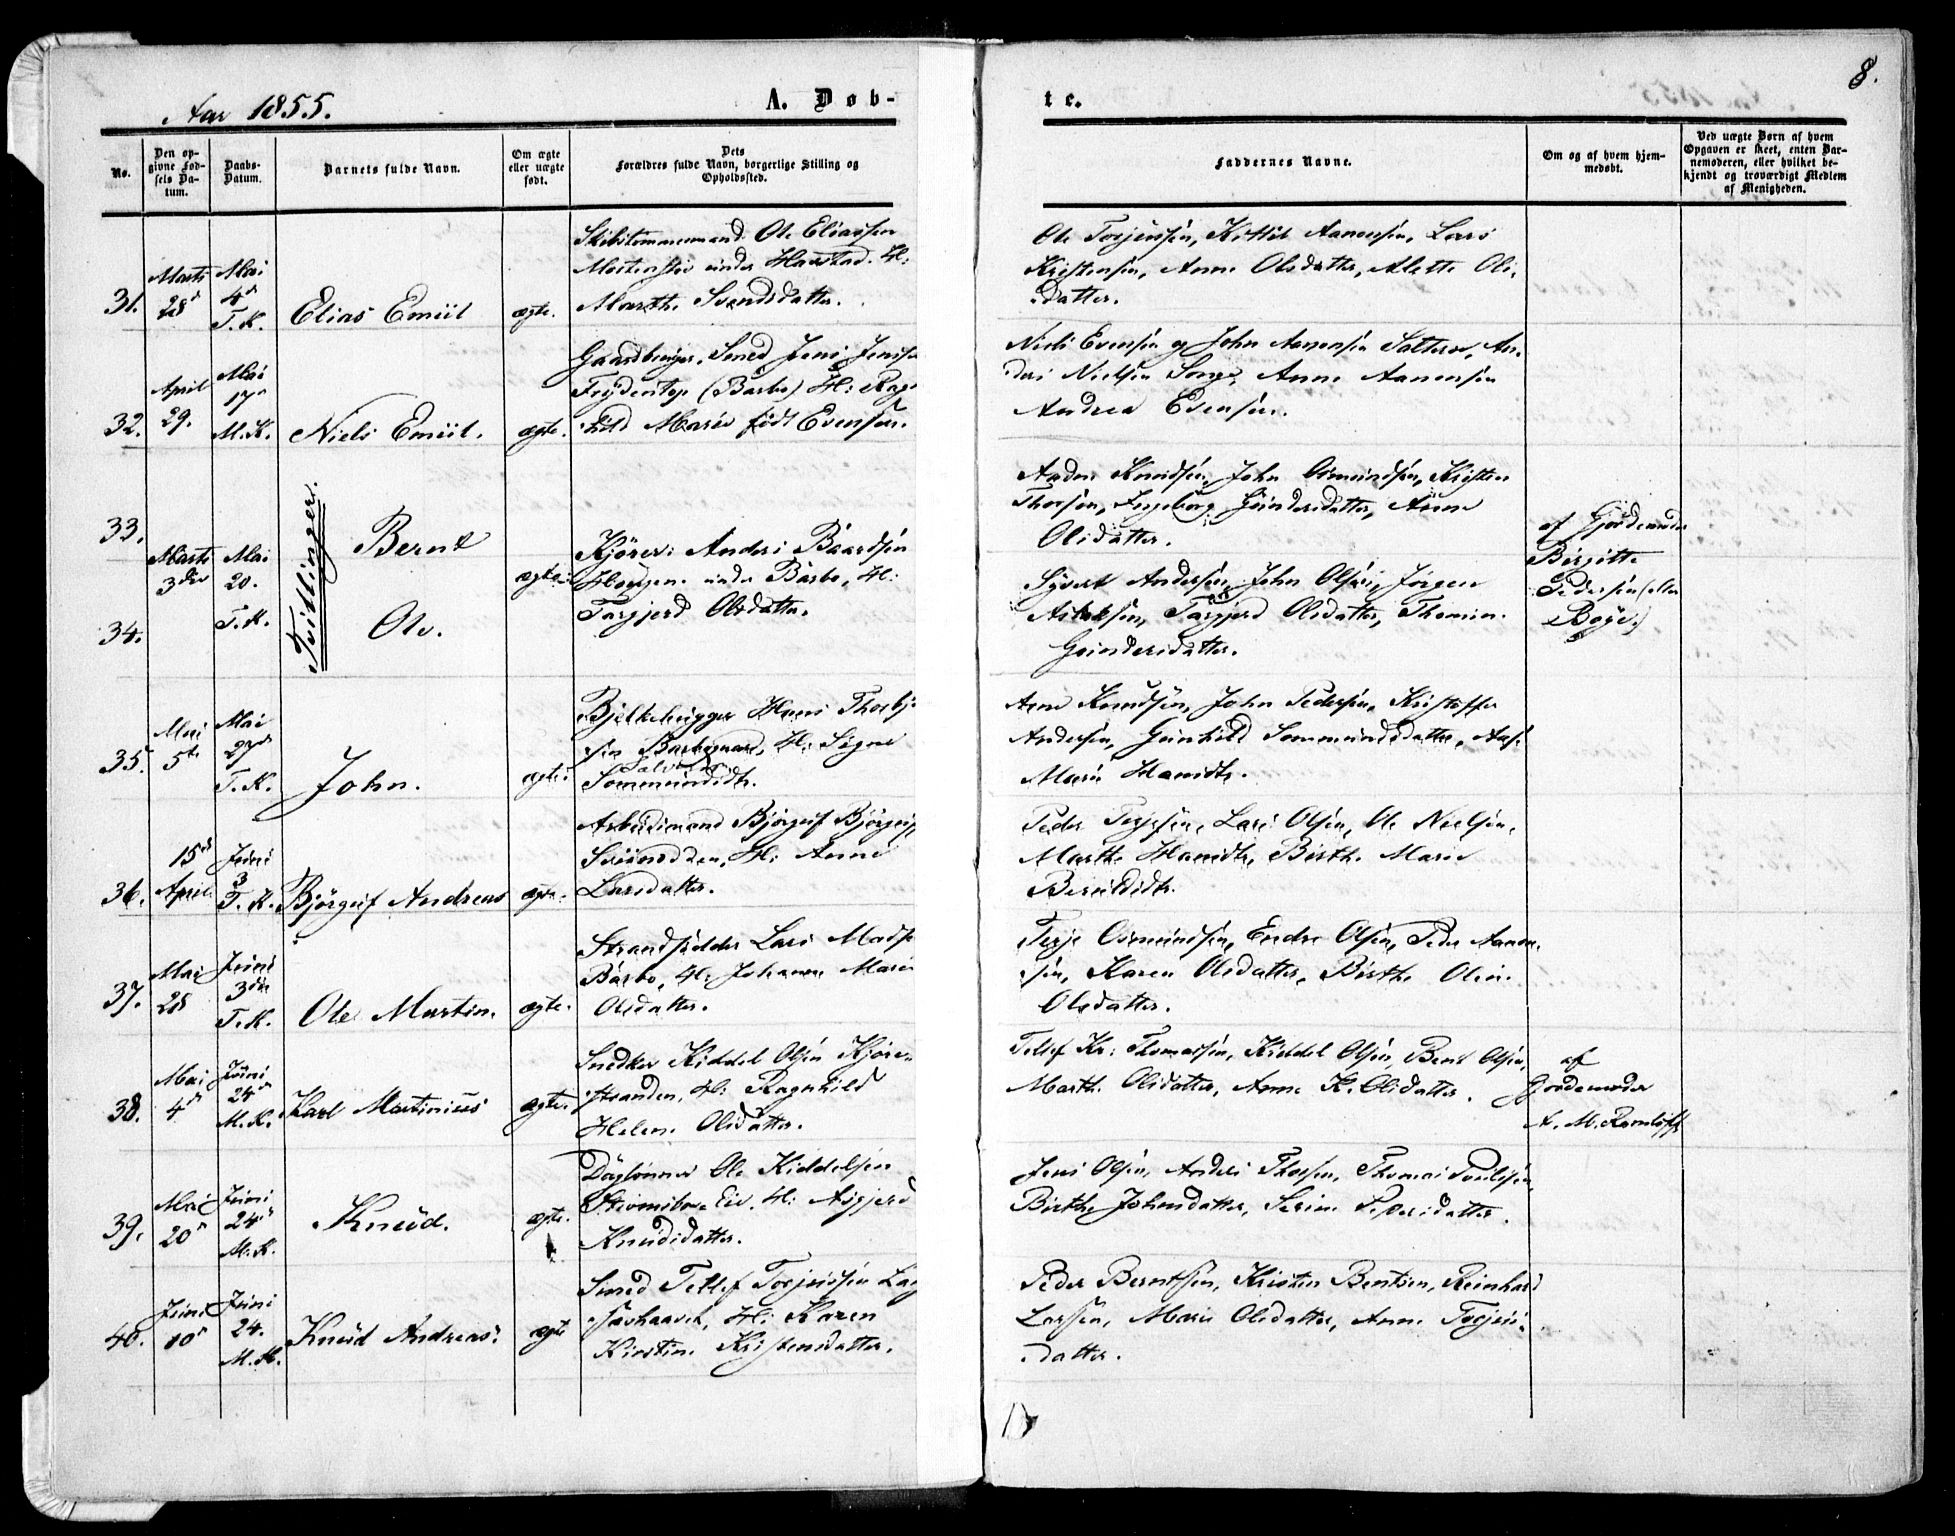 8.
Aar 1855.
A. Døb-
te.
No.
Den op-
givne Fød-
sels Da-
tum.
Daabs-
Datum.
Barnets fulde Navn.
Om ægte
eller uægte
født.
Dets
Forældres fulde Navn, borgerlige Stilling og
Opholdssted.
Faddernes Navne.
Om og af hvem hjem-
medøbt.
Ved uægte Børn af hvem
Opgaven er skeet, enten Bar-
nemoderen, eller hvilket be-
kjendt og troværdigt Medlem
af Menigheden.
31.
Marts
28
Mai
4
T. K.
Elias Emiil
ægte.
Skibstømmermand Ole Eliassen
under Harstad. H:
Marthe Svendsdatter.
Ole Torjussen, Kittil Aanensen, Lars
Kristensen, Anne Olsdatter, Alette Ols
datter.
32.
April
29.
Mai
17
M. K.
Niels Emiil.
ægte.
Gaardbruger, Smed Jens Jenssen
(Barbo) H: Rag
hild Marie født Evensen.
Niels Evensen og John Aanensen An-
ders Nielsen Songe, Anne Aanensen
Andrea Evensen.
33.
Marts
3die
Mai
20.
T. K.
Tvillinger.
Bernt
ægte.
Kjører: Anders Baardsen
under Barbo, H:
Targjerd Olsdatter.
Anders Knudsen, John Osmundsen, Kristen
Thorsen, Ingeborg Gundersdatter, Anne
Olsdatter.
af Gjordemoder
Birgitte
Pedersen (eller
Boye.)
34.
Ole.
Syvert Andersen, John Olsen, Jørgen
Aslaksen, Targjerd Olsdatter, Thomine
Gundersdatter.
35.
Mai
5te
Mai
27de
T. K.
John.
ægte.
Bjelkehugger Hans Thorbj
sen H: Signe
Sommundsdtr.
Arne Knudsen, John Pedersen, Kristoffer
Andersen, Gunhild Sommundsdatter,
Marie Hansdtr.
36.
15de
April
Juni
3
T. K.
Bjørguf Andreas
ægte.
Arbeidsmand Bjørguf Bjørgufs
H: Anne
Larsdatter.
Peder Terjesen, Lars Olsen, Ole Nielsen,
Marthe Hansdtr, Birthe Marie
37.
Mai
28
Juni
3die
T. K.
Ole Martin.
ægte.
Strandsidder Lars Mads
Barbo, H: Johanne Marie
Olsdatter.
Terje Osmundsen, Endre Olsen, Peder Aanen-
sen, Karen Olsdatter, Birthe Oline
Olsdatter.
38.
Mai
4
Juni
24
M. K.
Karl Martinius
ægte.
Snedker Kiddel Olsen
stranden, H: Ragnhild
Helene Olsdatter.
Tellef Kr: Thomassen, Kiddel Olsen, Bent Olsen,
Marthe Olsdatter, Anne K. Olsdatter.
af
Gjordemoder
A. M.
39.
Mai
20
Juni
24
M. K.
Knud.
ægte.
Daglønner Ole Kiddelsen
H: Asgjerd
Knudsdatter.
Jens Olsen, Anders Thorsen, Thomas Poulssen,
Birthe Johnsdatter, Serine Pedersdatter.
40.
Juni
10
Juni
24.
M. K.
Knud Andreas.
ægte
Smed Tellef Torjussen
H: Karen
Kirstine Kristensdatter.
Peder Berntsen, Kristen Bentsen, Reinhard
Larssen, Marie Olsdatter, Anne Torjus-
datter.